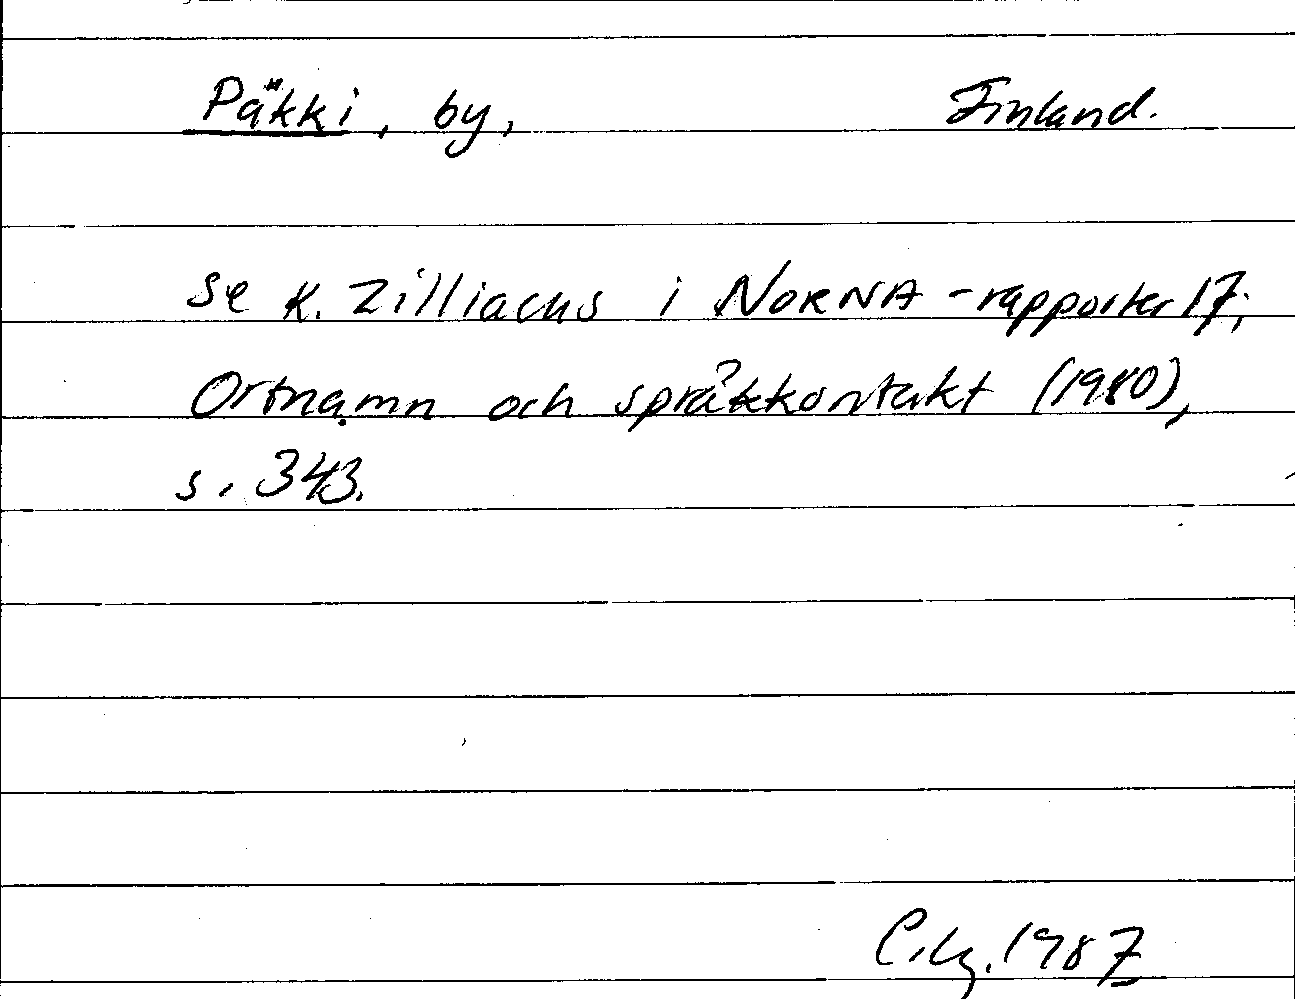 Päkki, by, Finland.
se K. Zilliacus i NORNA-rapporter 17;
Ortnamn och språkkontakt (1980),
s. 343.
1987